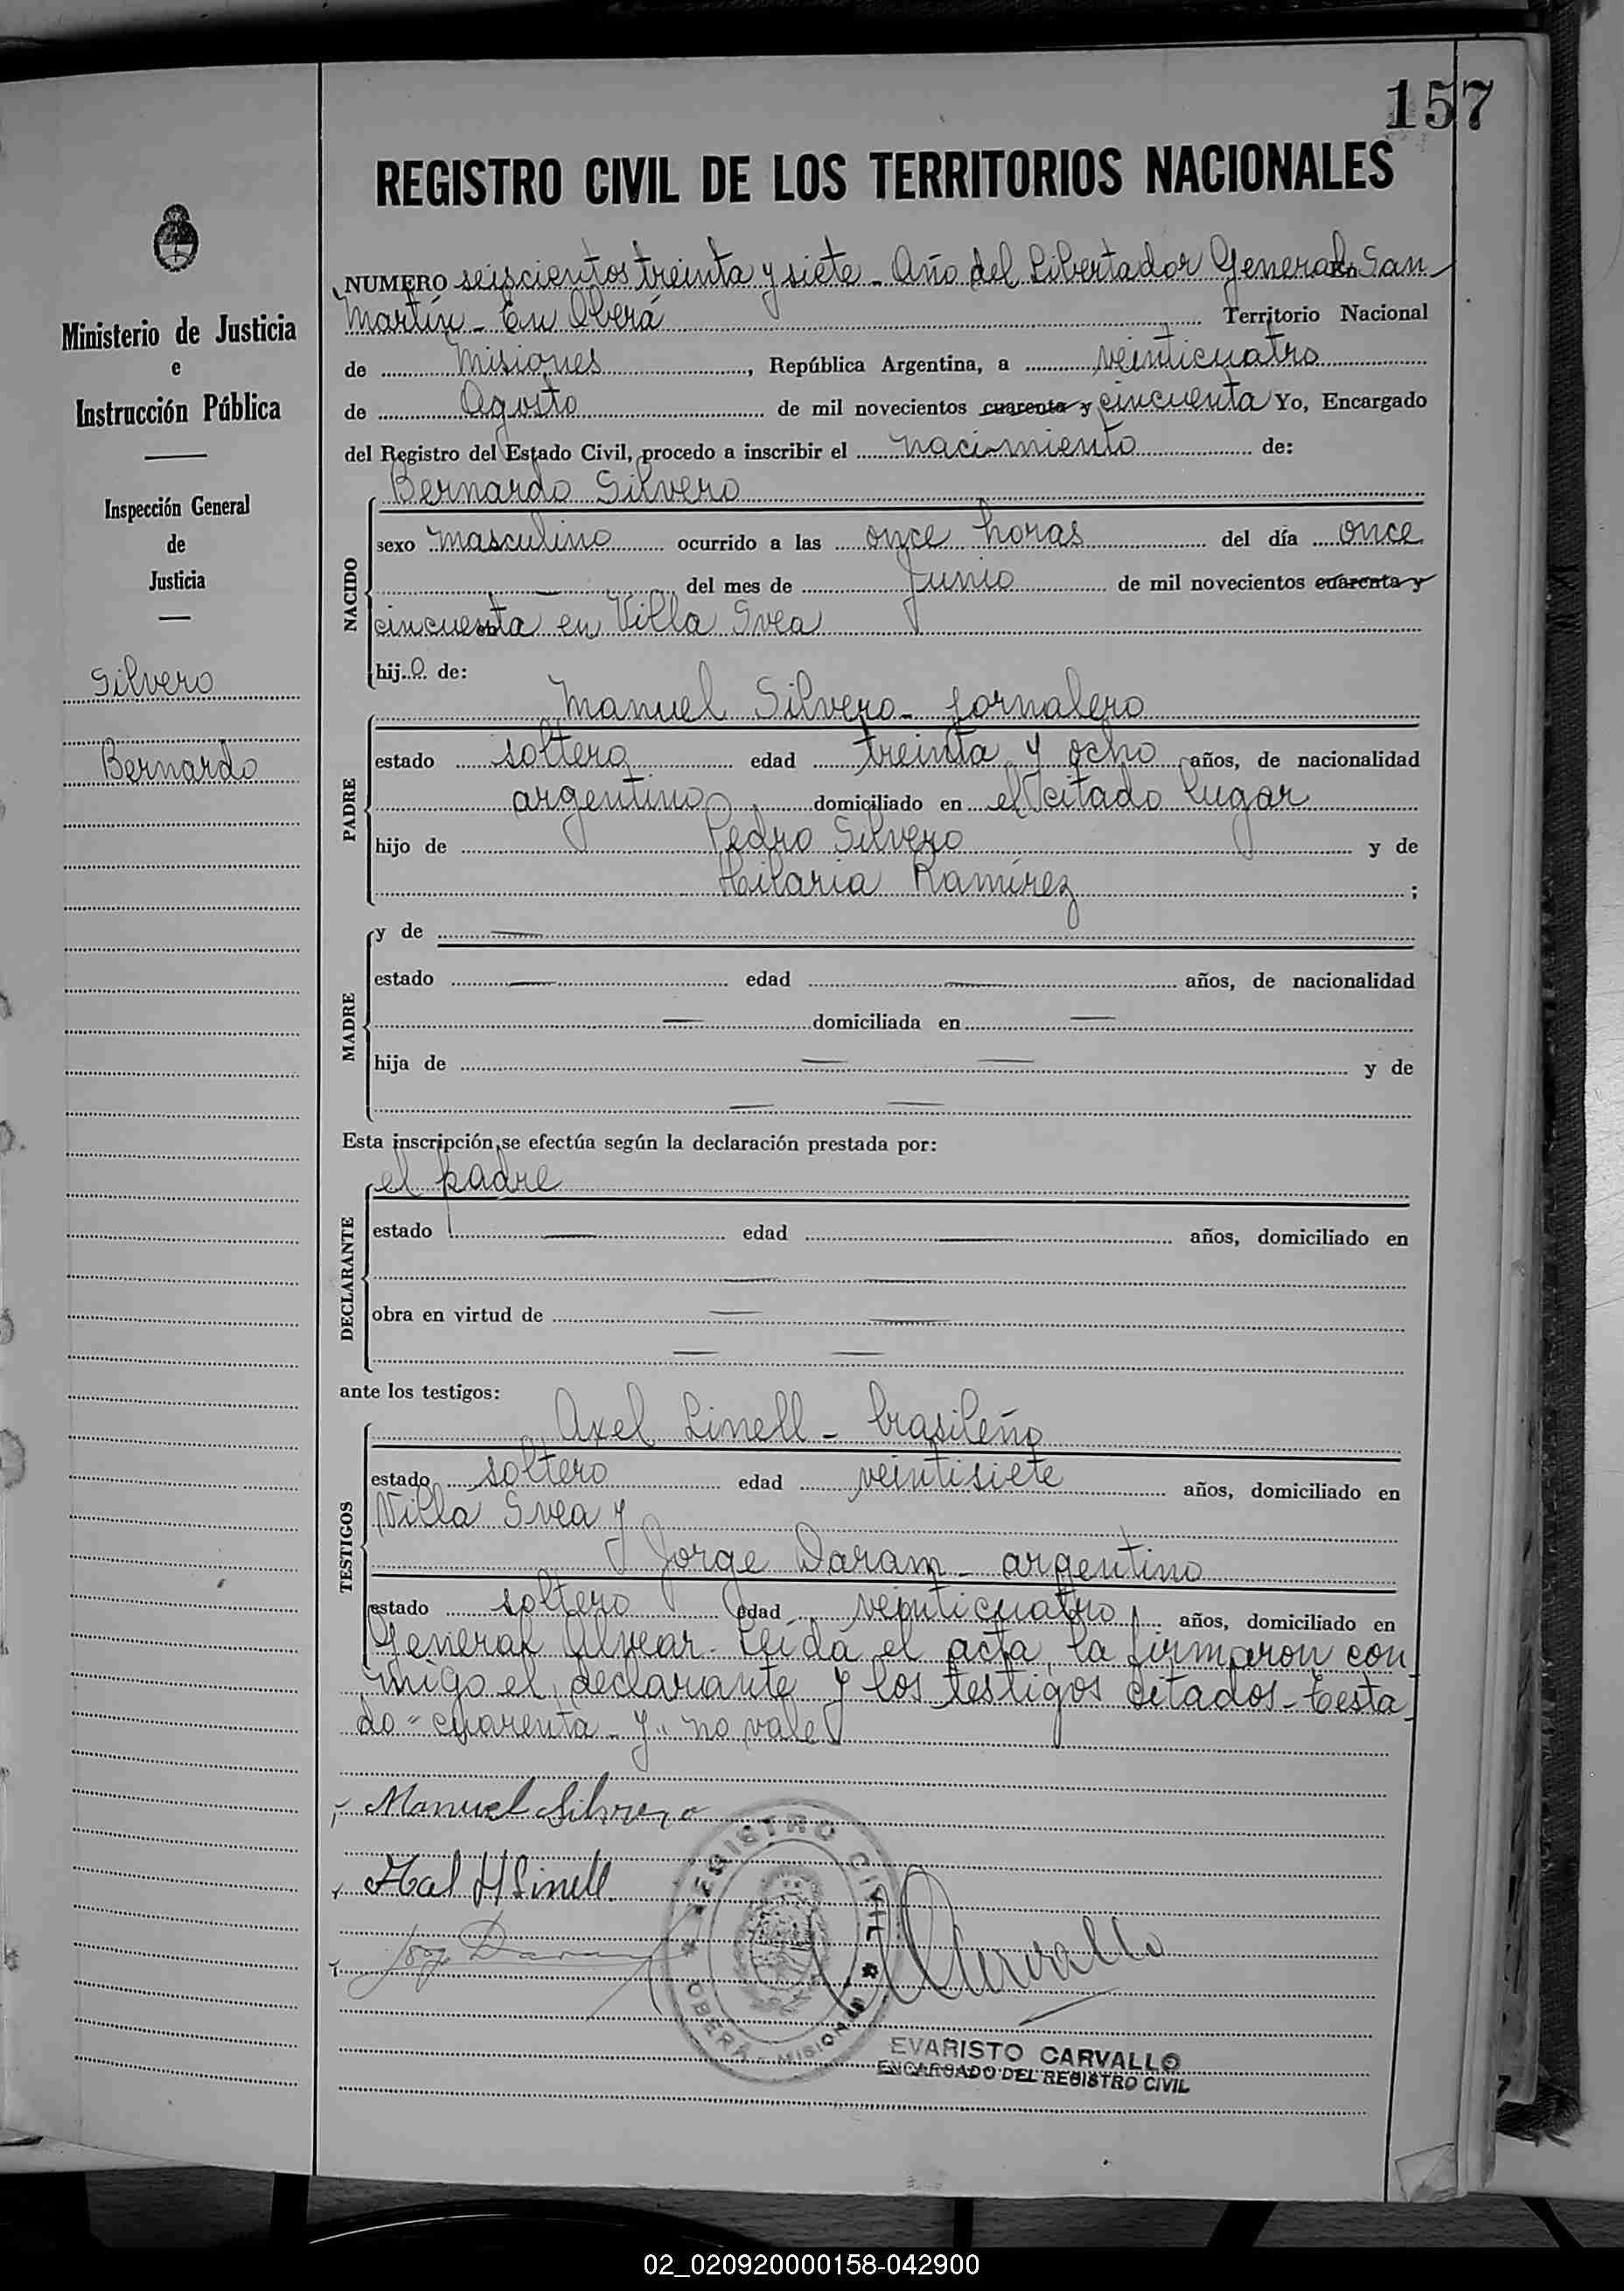 157
REGISTRO CIVIL DE LOS TERRITORIOS NACIONALES
Ministerio de Justicia
e
Instrucción Pública
Inspección General
de
Justicia
Silvero
Bernardo
NUMERO seiscientos treinta y siete - Año del Libertador General San
Martín - En Oberá Territorio Nacional
de Misiones, República Argentina, a veinticuatro
de Agosto de mil novecientos cuarenta y cincuenta Yo, Encargado
del Registro del Estado Civil, procedo a inscribir el nacimiento de:
NACIDO
Bernardo Silvero
sexo masculino ocurrido a las once horas del día once
del mes de Junio de mil novecientos cuarenta y
cincuenta en Villa Svea
hijo de:
PADRE
Manuel Silvero - jornalero
estado soltero edad treinta y ocho años, de nacionalidad
argentino domiciliado en el citado lugar
hijo de Pedro Silvero y de
Hilaria Ramírez ;
MADRE
y de
estado edad años, de nacionalidad
domiciliada en
hija de y de
Esta inscripción se efectúa según la declaración prestada por:
DECLARANTE
el padre
estado edad años, domiciliado en
obra en virtud de
ante los testigos:
TESTIGOS
Axel Linell - brasileño
estado soltero edad veintisiete años, domiciliado en
Villa Svea y
Jorge Daram - argentino
estado soltero edad veinticuatro años, domiciliado en
General Alvear - Leída el acta, la firmaron con
migo el declarante y los testigos citados - Testa
do "cuarenta - y" no vale
Manuel Silvero
Axel H Linell
Jorge Daram
REGISTRO CIVIL
OBERÁ - MISIONES
Carvallo
EVARISTO CARVALLO
ENCARGADO DEL REGISTRO CIVIL
02_020920000158-042900